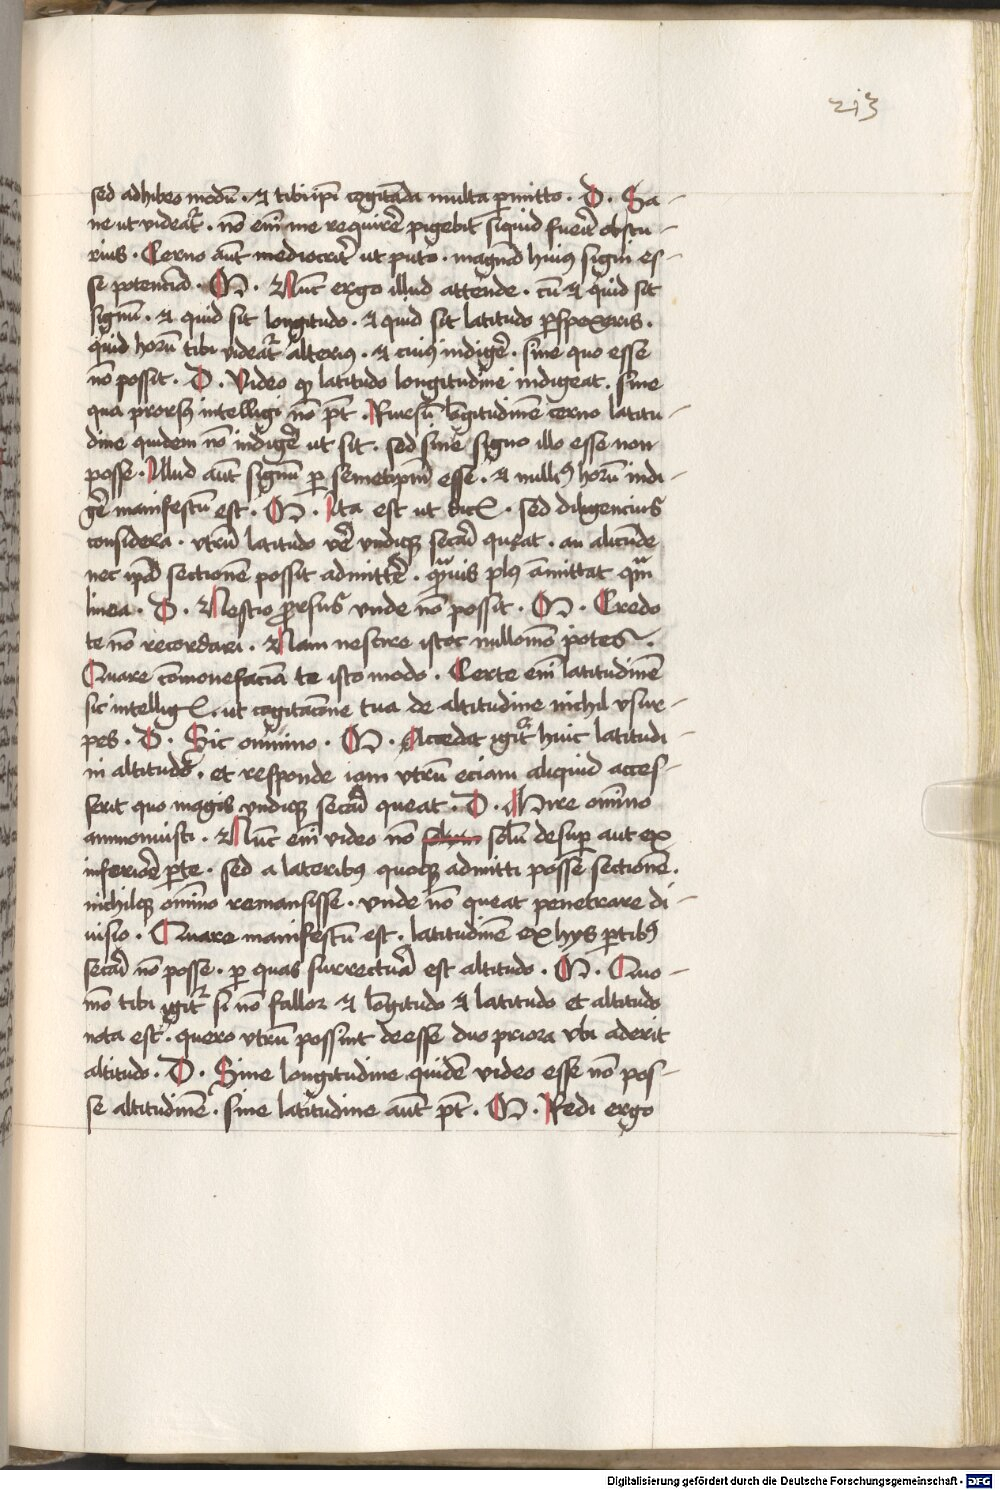 213
sed adhibeo modū · ⁊ tibiip̄i cogitāda multa p̄mitto · D · Sa-
ne ut videat᷑ · nō em̄ me requirer̄ pigebit siquid fuer̄ obscu-
rius · Cerno aūt mediocrit᷑ ut puto · magnā huiꝰ signi es-
se potenciā · M · Nūc ergo illud attende · cū ⁊ quid sit
signū · ⁊ quid sit longitudo · ⁊ quid sit latitudo ꝑspexeris ·
quid horū tibi videat᷑ alteriꝰ · ⁊ cuiꝰ indiger̄ · sine quo esse
nō possit · D · Video ꝙ latitudo longitudine indigeat · sine
qua prorsꝰ intelligi nō pt̄ · Rursū lōgitudinē cerno latitu-
dine quidem nō indiger̄ ut sit · sed sine signo illo esse non
posse · Illud aūt signū ꝑ semetipm̄ esse · ⁊ nulliꝰ horū indi-
ger̄ manifestū est · M · Ita est ut dicꝭ · sed diligencius
considera · vtrū latitudo ver̄ vndiqꝫ secari queat · an alicūde
nec ip̄a sectionē possit admitter̄ · qͣuis plꝰ āmittat qͣm
linea · D · Nescio ꝓrsus vnde nō possit · M · Credo
te nō recordari · Nam nescire istoc nullomō potes ·
Quare cōmonefaciā te isto modo · Certe em̄ latitudinē
sic intelligꝭ · ut cogitacōne tua de altitudine nichil vsur-
pes · D · Sic om̄ino · M · Accedat igit᷑ huic latitudi
ni altitudo · et responde iam vtrū eciam aliquid acces-
serit quo magis vndiqꝫ secari queat · D · Mire om̄ino
ammonuisti · Nūc em̄ video nō solum solū desuꝑ aut ex
inferiore ꝑte · sed a lateribꝰ quoqꝫ admitti posse sectionē ·
nichilqꝫ om̄ino remansisse · vnde nō queat penetrare di-
uisio · Quare manifestū est · latitudinē ex hys ꝑtibꝰ
secari nō posse · ꝑ quas surrectura est altitudo · M · Quo-
mō tibi igit᷑ si nō fallor ⁊ lōgitudo ⁊ latitudo et altitudo
nota est · quero vtrū possint deesse duo priora vbi aderit
altitudo · D · Sine longitudine quidē video esse nō pos-
se altitudinē · sine latitudine aūt pt̄ · M · Redi ergo
Digitalisierung gefördert durch die Deutsche Forschungsgemeinschaft - DFG